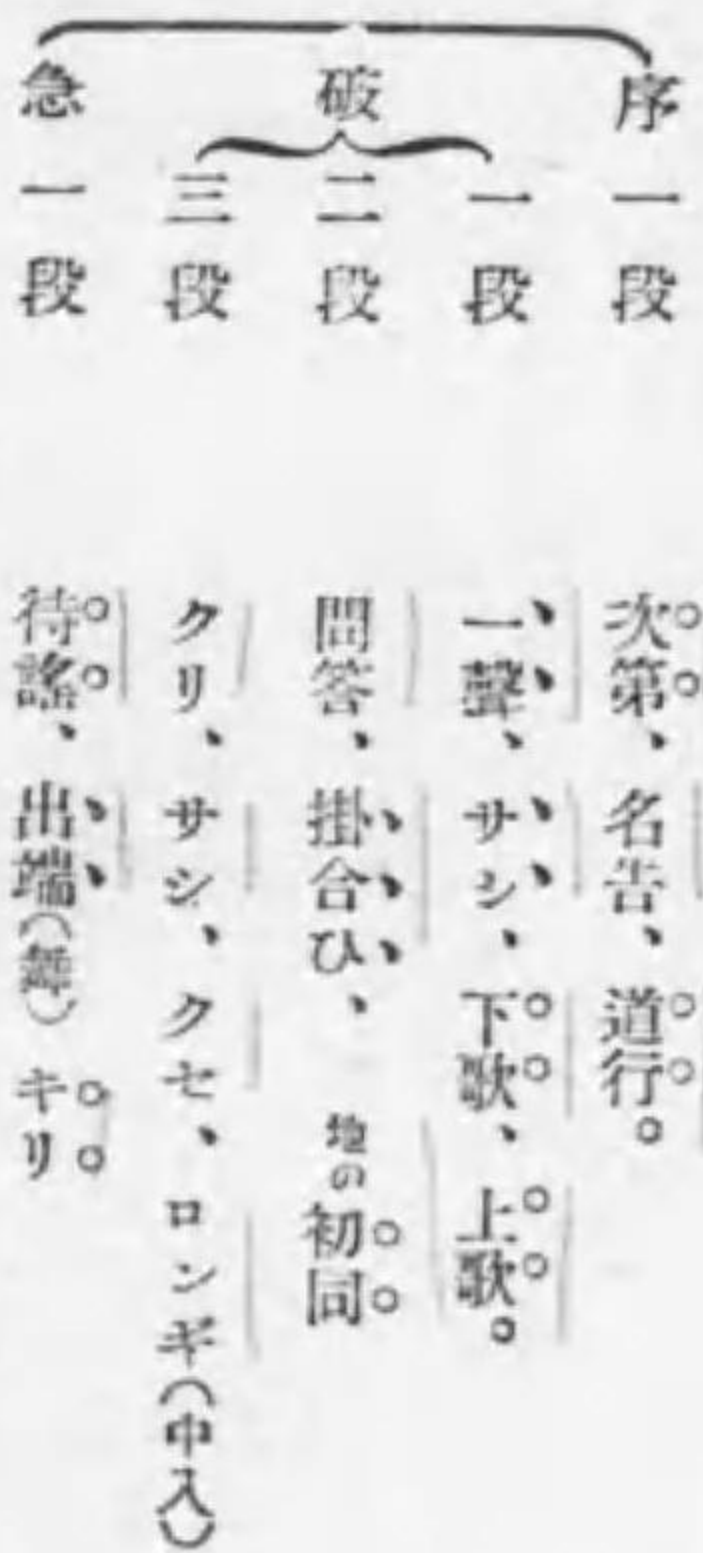 序 一段 次第、名告、道行。
破 一段 一聲、サシ、下歌、上歌。
二段 問答、掛合ひ、地の初同
三段 クリ、サシ、クセ、ロンギ(中入)
急 一段 待謠、出端(舞)キリ